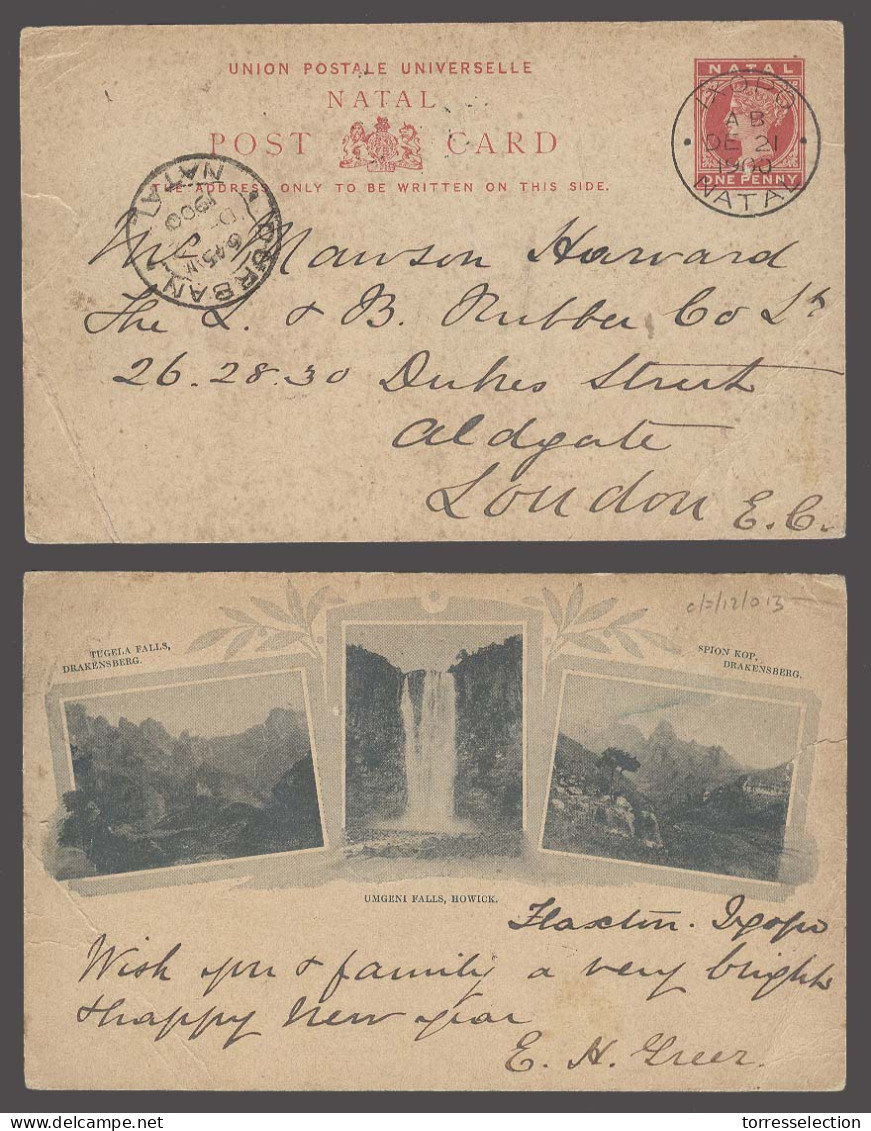 UNION POSTALE UNIVERSELLE
NATAL
POST CARD
THE ADDRESS ONLY TO BE WRITTEN ON THIS SIDE.
NATAL
ONE PENNY
IXOPO
AB
DE 21
1900
NATAL
DURBAN
1900
NATAL
Mr Mawson Harward
The L. & B. Rubber Co Ld
26.28.30 Dukes Street
Aldgate
London E.C.
c/5/12/013
TUGELA FALLS,
DRAKENSBERG.
SPION KOP,
DRAKENSBERG.
UMGENI FALLS, HOWICK.
Flaxton. Ixopo
Wish you & family a very bright
& happy New year
E. H. Greer.
torresselection